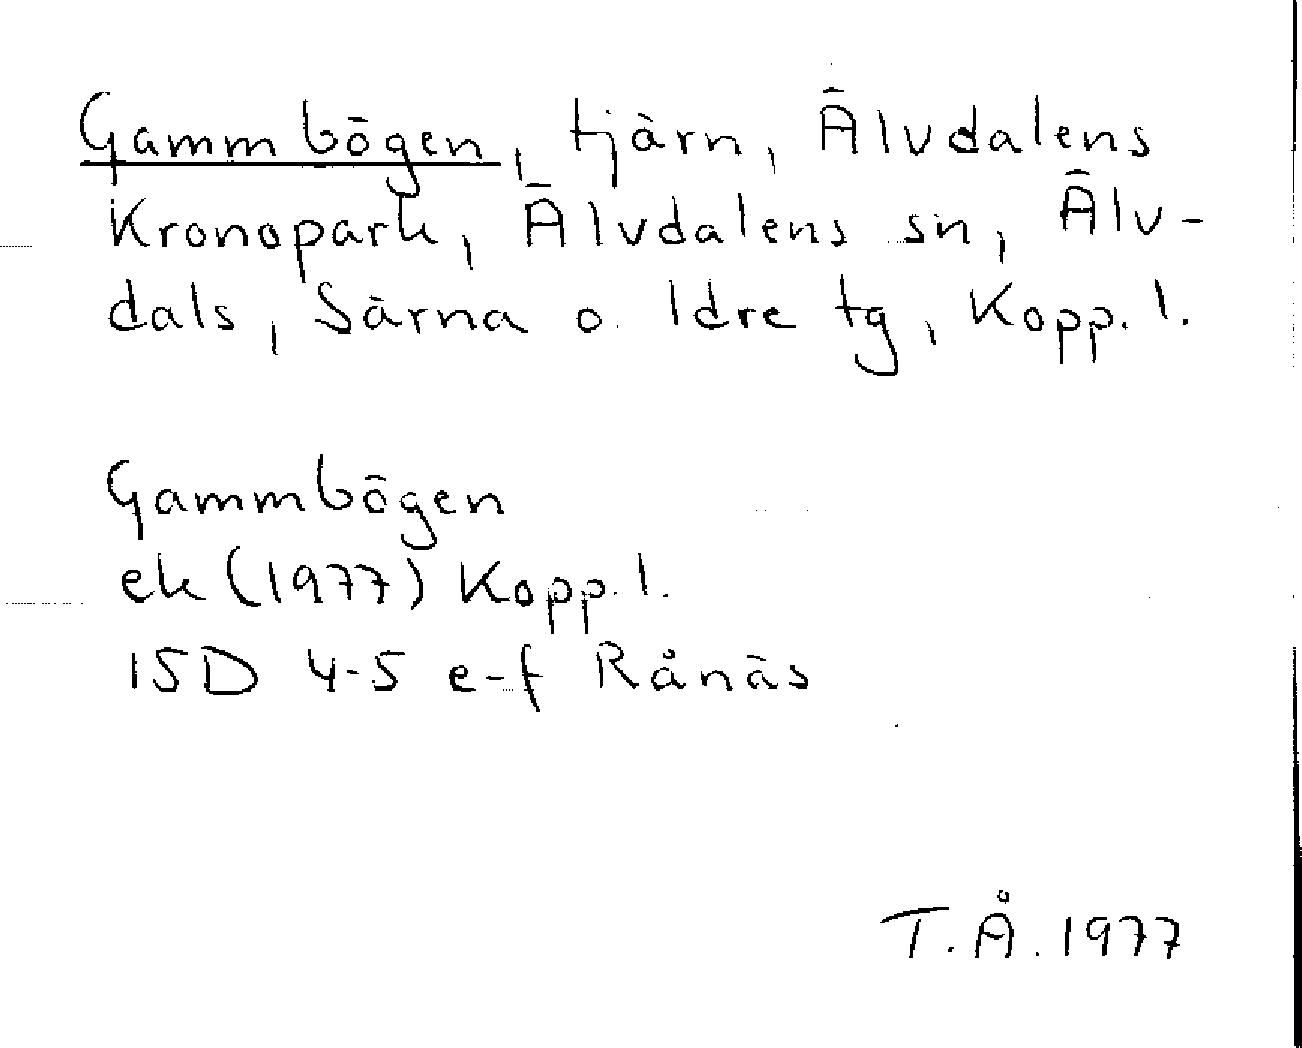 Gammbögen, tjärn, Älvdalens
Kronopark, Älvdalens sn, Älv-
dals, Särna o. Idre tg, Kopp. l.
Gammbögen
ek (1977) Kopp. l.
15D 4-5 e-f Rånäs
T.Å. 1977